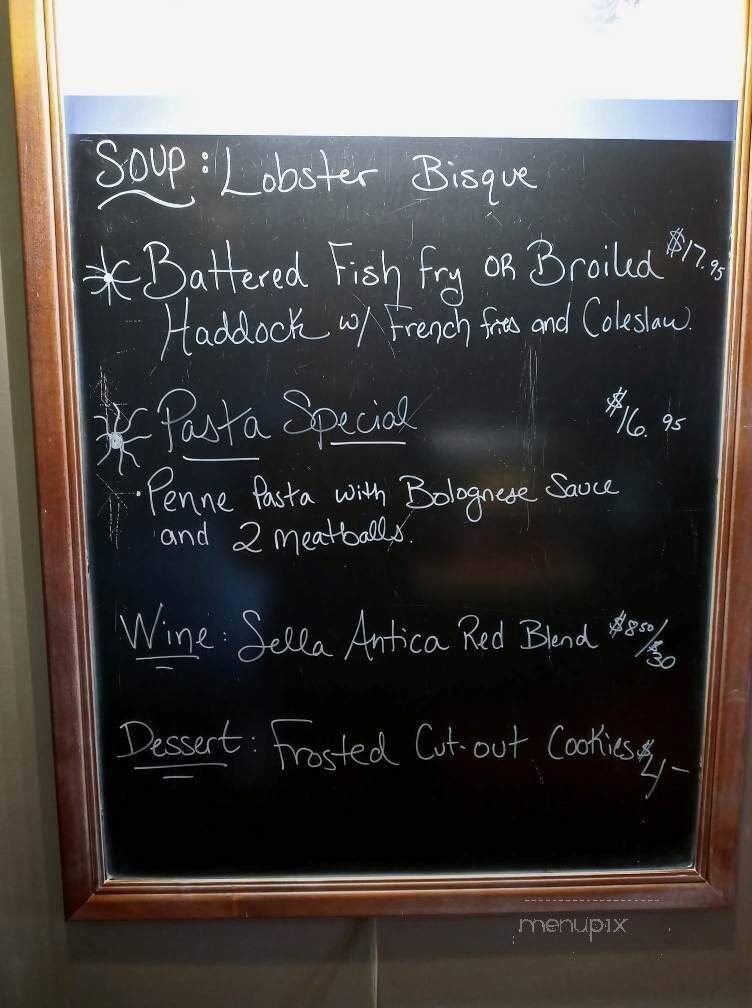 Soup: Lobster Bisque
Battered Fish Fry OR Broiled $17.95
Haddock w/ French fries and Coleslaw.
Pasta Special $16.95
· Penne Pasta with Bolognese Sauce
and 2 meatballs.
Wine: Sella Antica Red Blend $8.50/$30
Dessert: Frosted Cut-out Cookies $4-
menupix